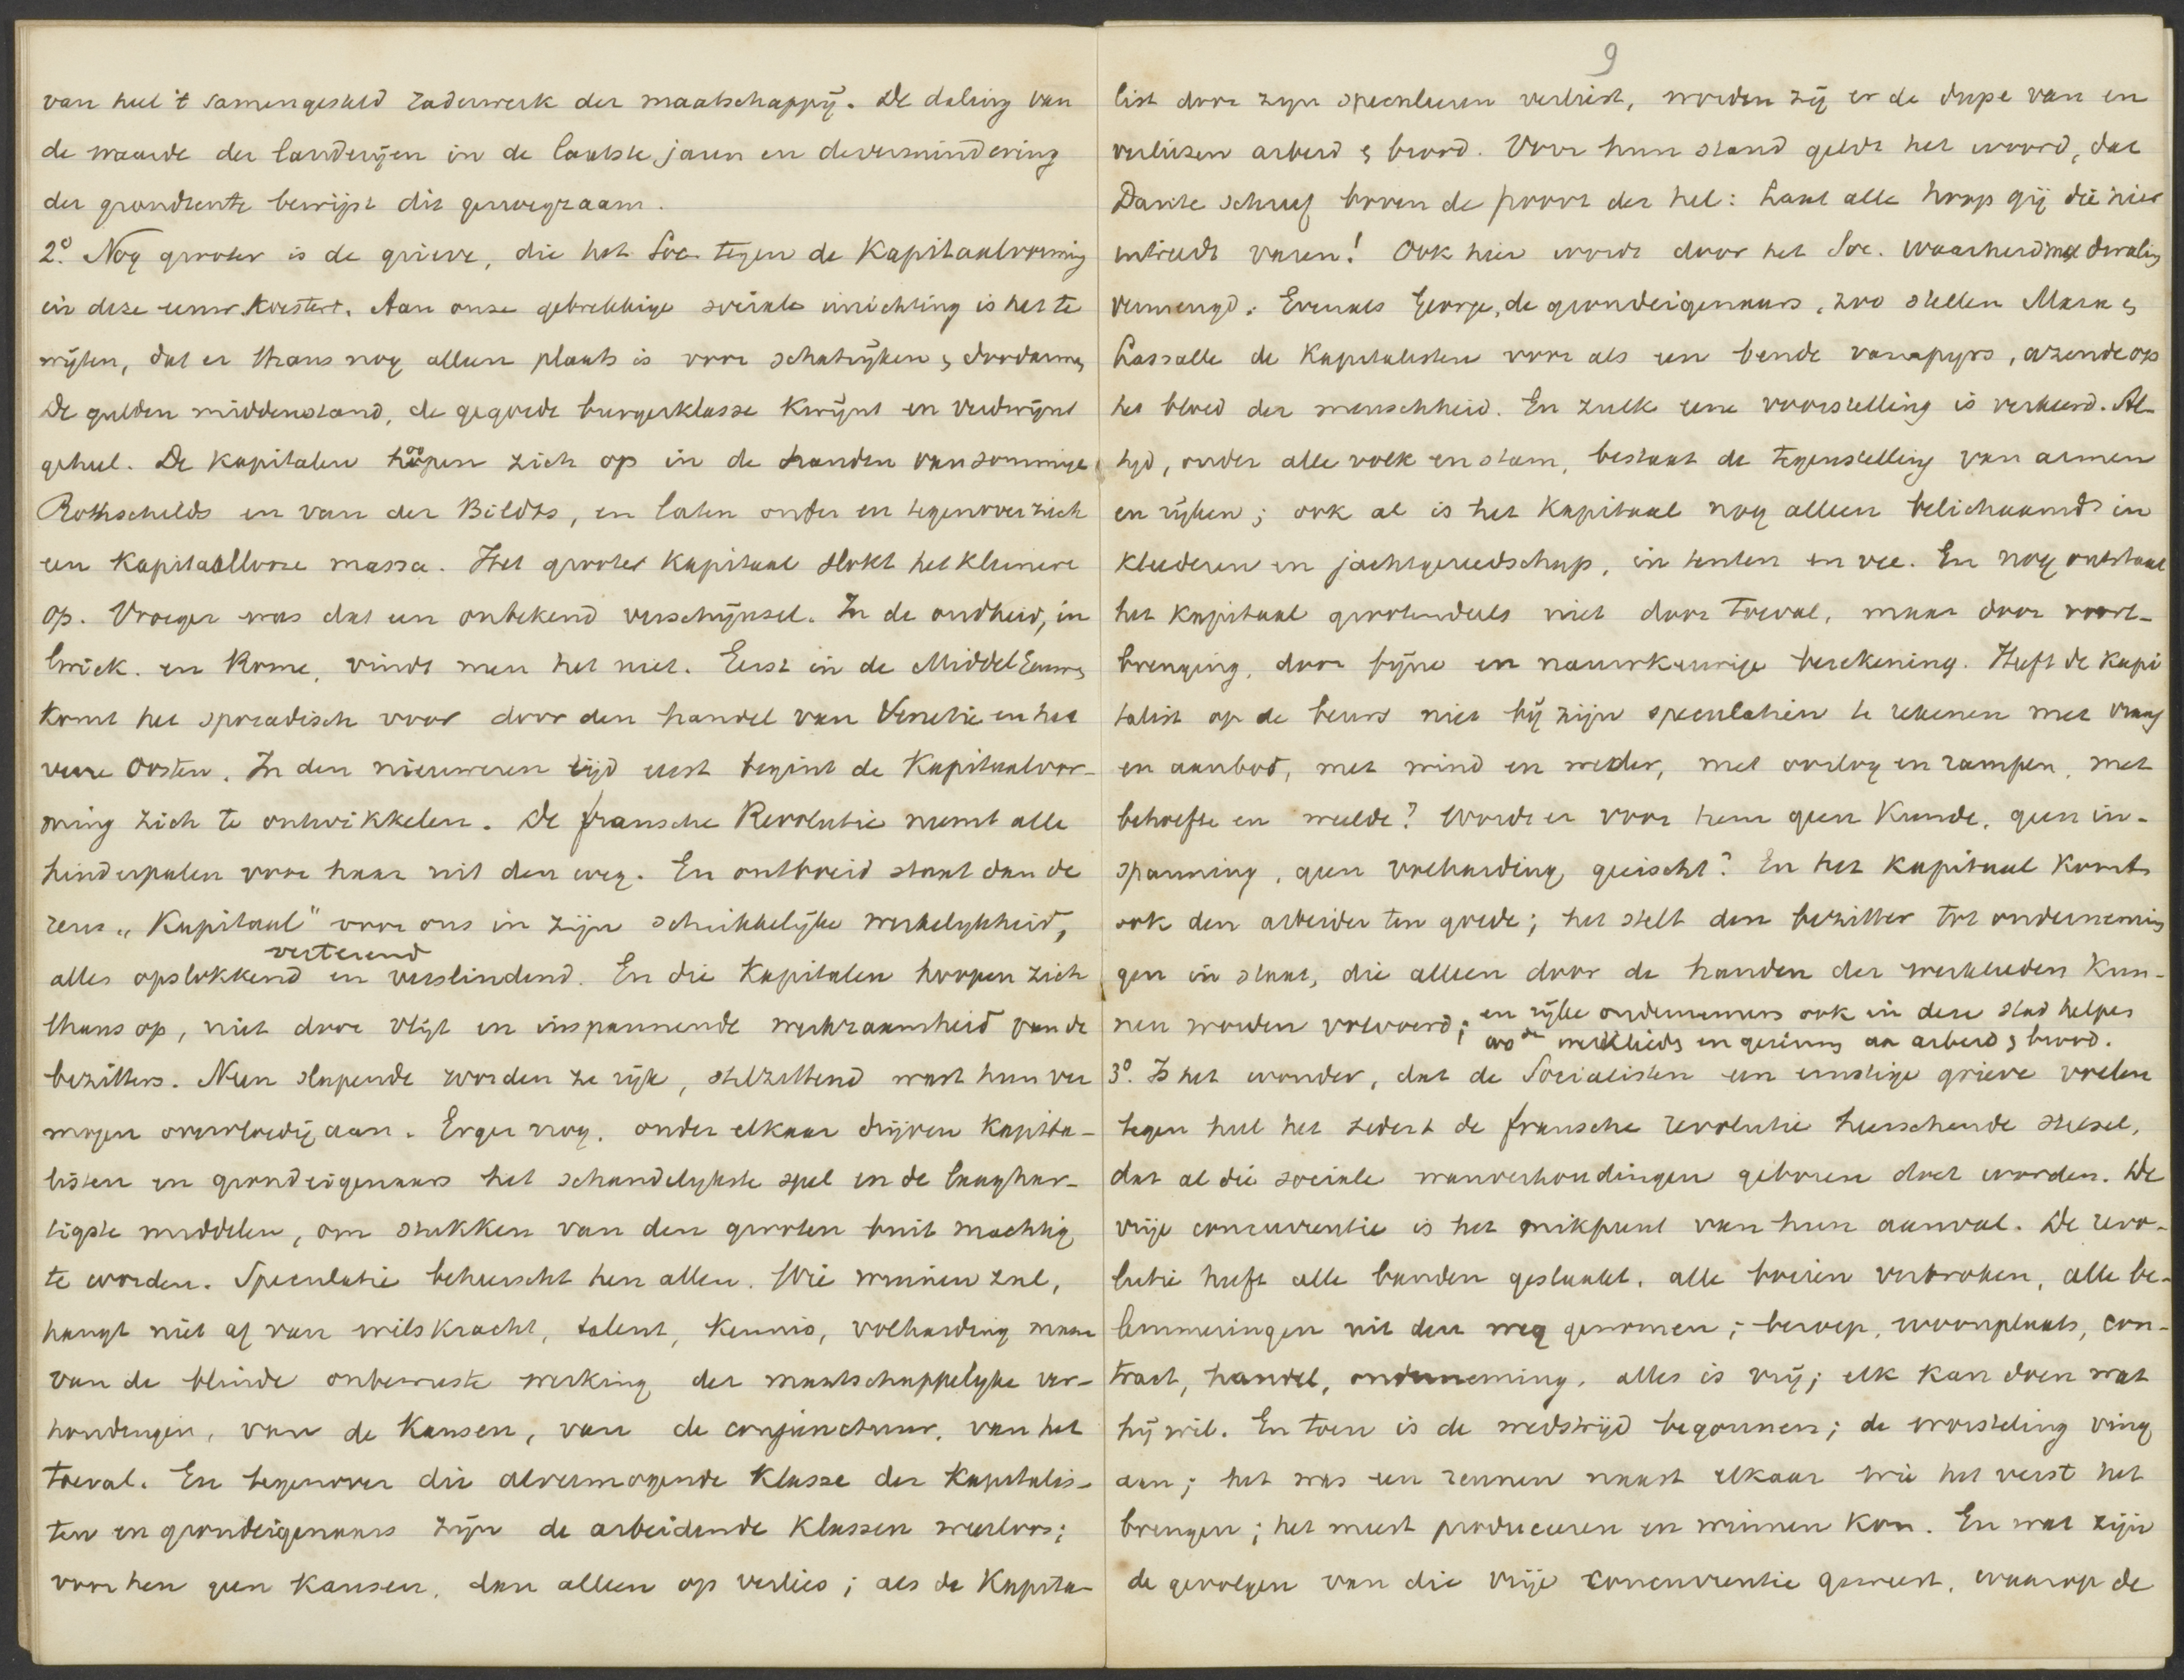 van heel 't samengesteld raderwerk der maatschappij. De daling van
de waarde der landerijen in de laatste jaren en de vermindering
der grondrente bewijst dit genoegzaam.
2.° Nog grooter is de grieve, die het Soc. tegen de Kapitaalvorming
in deze eeuw koestert. Aan onze gebrekkige sociale inrichting is het te
wijten, dat er thans nog alleen plaats is voor schatrijken & doodarmen
De gulden middenstand, de gegoede burgerklasse kwijnt en verdwijnt
geheel. De kapitalen hoopen zich op in de handen van sommige
Rothschilds en van der Bildts, en laten onder en tegenover zich
een kapitaallooze massa. Het grooter kapitaal slokt het kleinere
op. Vroeger was dat een onbekend verschijnsel. In de oudheid, in
Griek. en Rome, vindt men het niet. Eerst in de Middel Eeuwen
komt het sporadisch voor door den handel van Venetie en het
verre Oosten. In den nieuweren tijd eerst begint de Kapitaalvor-
ming zich te ontwikkelen. De fransche Revolutie neemt alle
hinderpalen voor haar uit den weg. En ontboeid staat dan de
reus „Kapitaal" voor ons in zijn schrikkelijke werkelijkheid,
verterend
alles opslokkend en verslindend. En die kapitalen hoopen zich
thans op, niet door vlijt en inspannende werkzaamheid van de
bezitters. Neen slapende worden ze rijk, stilzittend wast hun ver
mogen overvloedig aan. Erger nog, onder elkaar drijven kapita-
listen en grondeigenaars het schandelijkste spel en de laaghar-
tigste middelen, om stukken van den grooten buit machtig
te worden. Speculatie beheerscht hen allen. Wie winnen zal,
hangt niet af van wilskracht, talent, kennis, volharding maar
van de blinde onbewuste werking der maatschappelijke ver-
houdingen, van de kansen, van de conjunctuur, van het
toeval. En tegenover die alvermogende klasse der kapitalis-
ten en grondeigenaars zijn de arbeidende klassen weerloos;
voor hen geen kansen, dan alleen op verlies; als de kapita-
9
list door zijn speculeeren verliest, worden zij er de dupe van en
verliezen arbeid & brood. Voor hun stand geldt het woord, dat
Dante schreef boven de poort der hel: Laat alle hoop gij die hier
intreedt varen! Ook hier wordt door het Soc. waarheid met dwaling
vermengd. Evenals George, de grondeigenaars, zoo stellen Marx &
Lassalle de kapitalisten voor als een bende vampyrs, azende op
het bloed der menschheid. En zulk eene voorstelling is verkeerd. Al-
tijd, onder alle volk en stam, bestaat de tegenstelling van armen
en rijken; ook al is het kapitaal nog alleen belichaamd in
kleederen en jachtgereedschap, in tenten en vee. En nog ontstaat
het kapitaal grootendeels niet door toeval, maar door voort-
brenging, door fijne en nauwkeurige berekening. Heeft de kapi
talist op de beurs niet bij zijn speculatiën te rekenen met vraag
en aanbod, met wind en weder, met oorlog en rampen, met
behoefte en weelde? Wordt er voor hem geen kunde, geen in-
spanning, geen volharding geëischt? En het kapitaal komt
ook den arbeider ten goede; het stelt den bezitter tot ondernemin
gen in staat, die alleen door de handen der werklieden kun-
nen worden volvoerd; en rijke ondernemers ook in deze stad helpen
de werklieds en gezinns aan arbeid & brood.
3.° Is het wonder, dat de Socialisten een ernstige grieve voelen
tegen heel het sedert de fransche revolutie heerschende stelsel,
dat al die sociale wanverhoudingen geboren doet worden. De
vrije concurrentie is het mikpunt van hun aanval. De revo-
lutie heeft alle banden geslaakt, alle boeien verbroken, alle be-
lemmeringen uit den weg genomen; beroep, woonplaats, con-
tract, handel, onderneming, alles is vrij; elk kan doen wat
hij wil. En toen is de wedstrijd begonnen; de worsteling ving
aan; het was een rennen naast elkaar wie het verst het
brengen; het meest produceeren en winnen kon. En wat zijn
de gevolgen van die vrije concurrentie geweest, waarop de